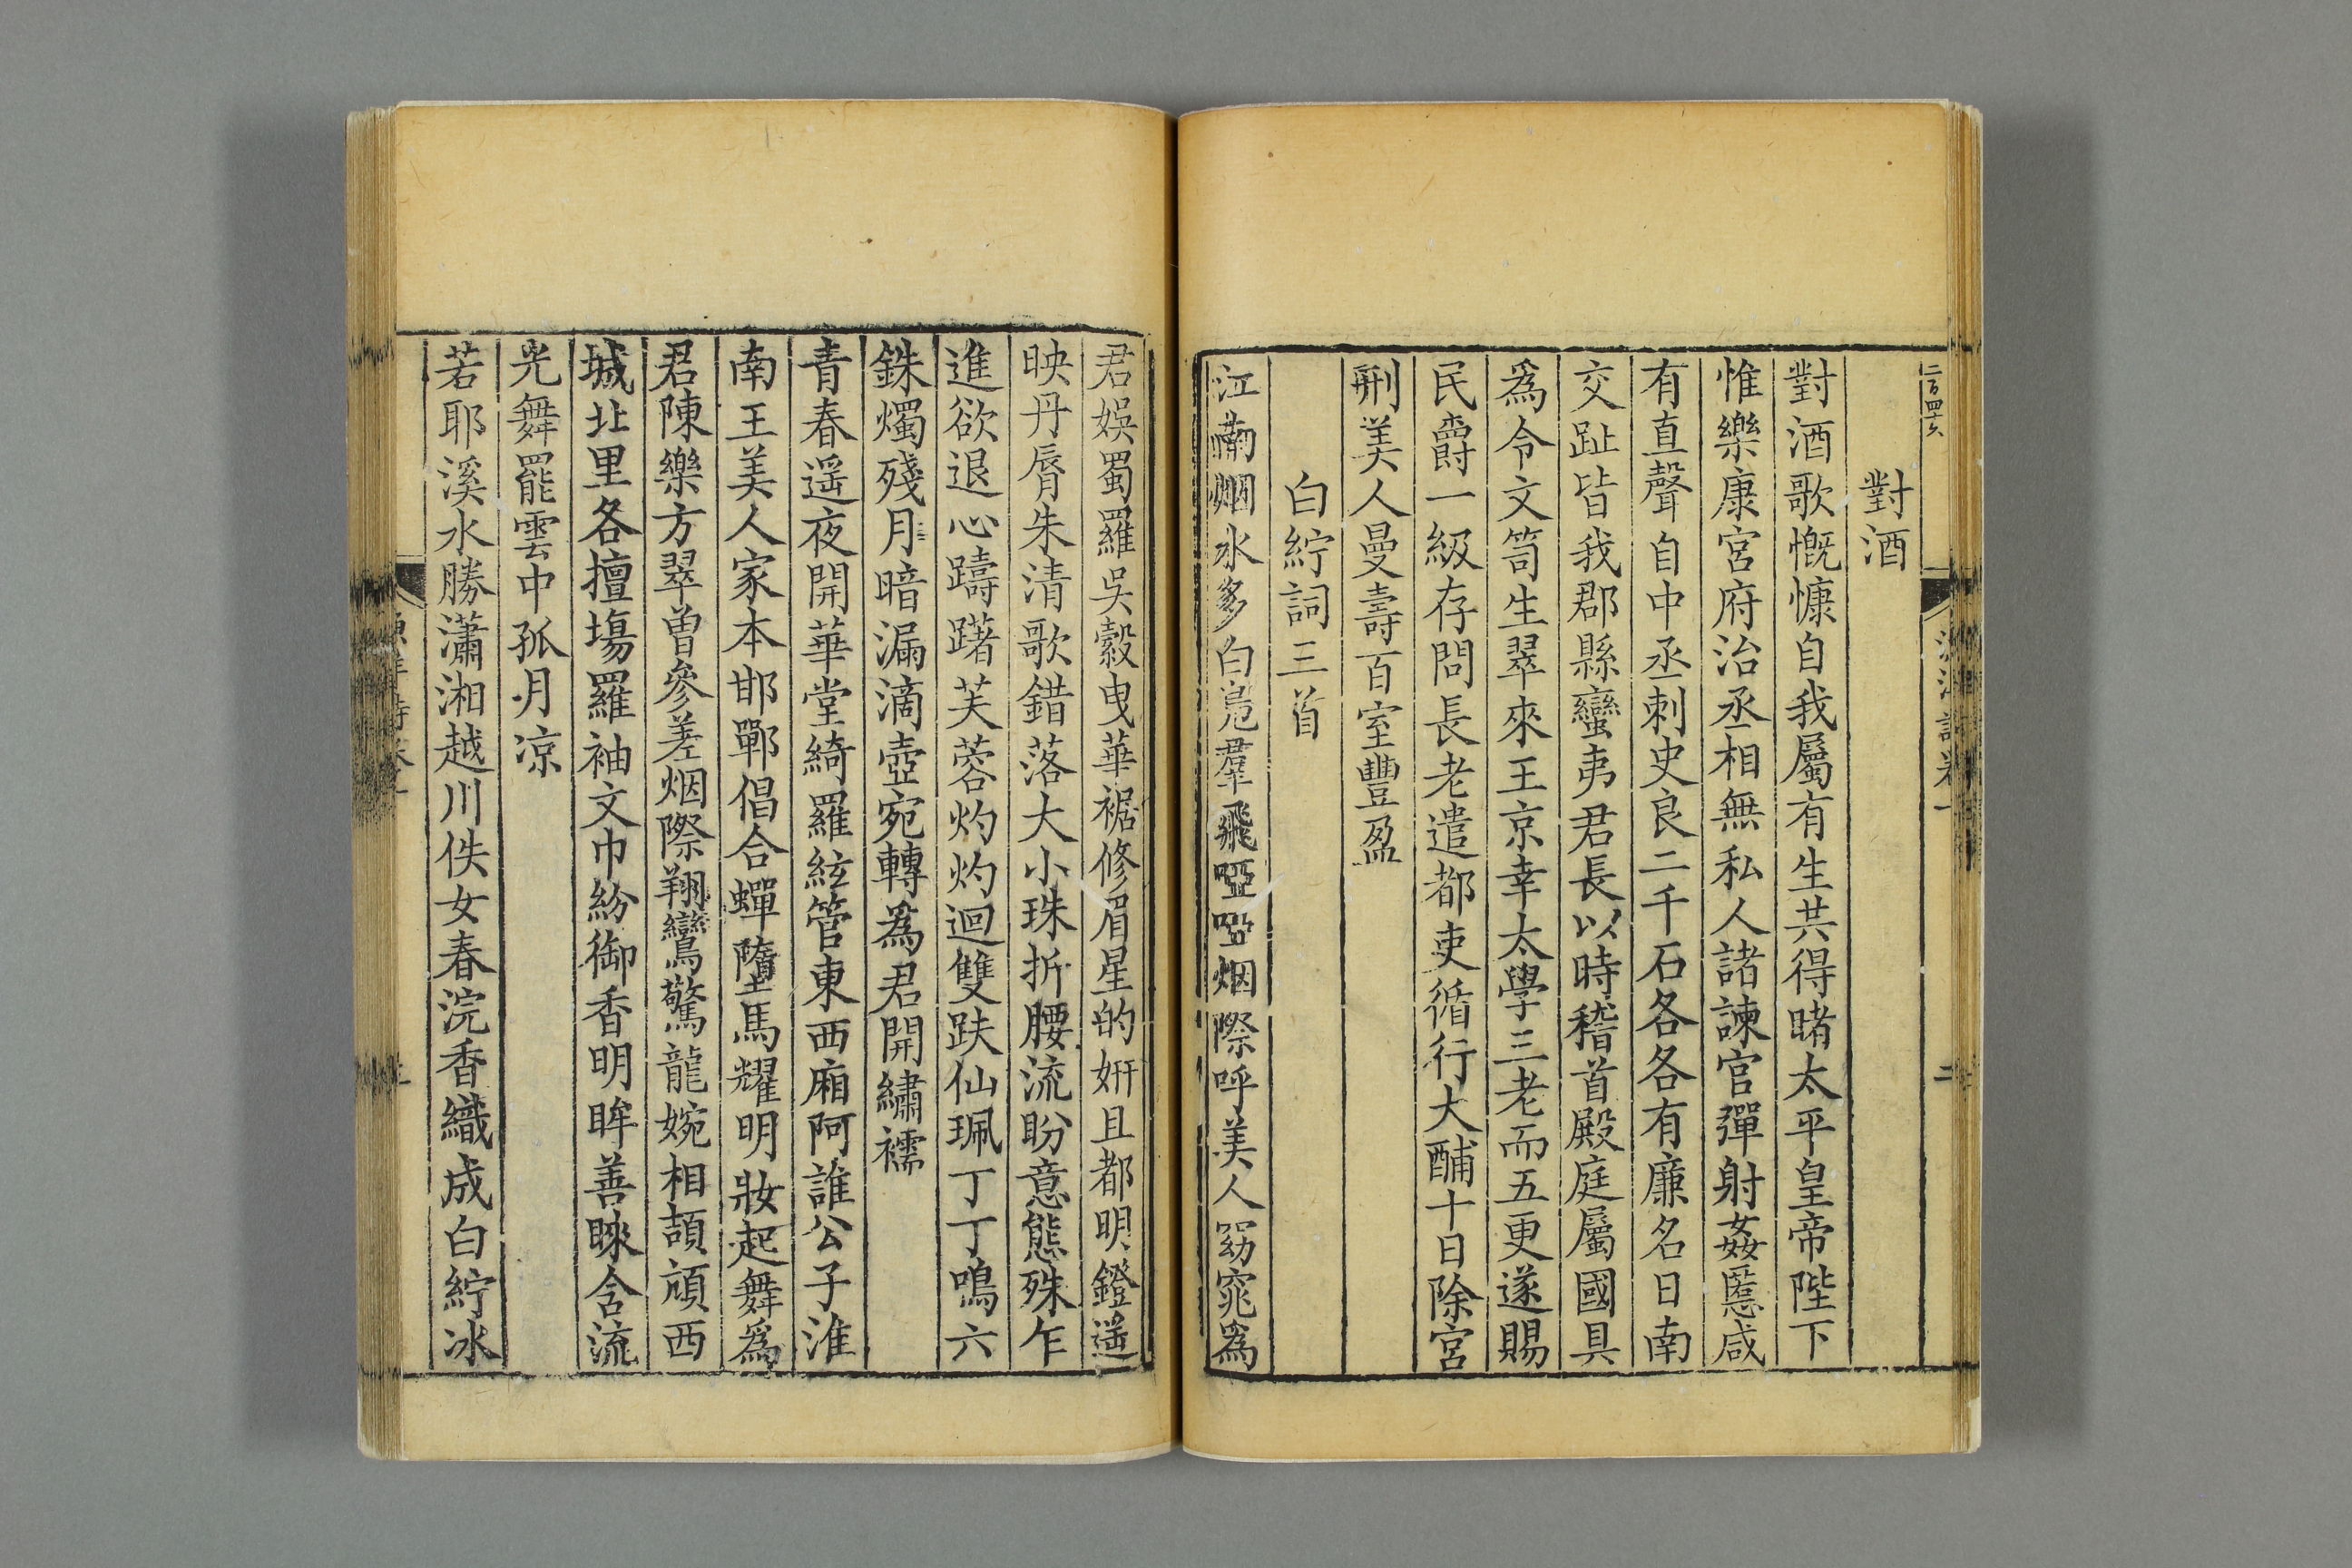 對酒
對酒歌慨慷自我屬有生共得睹太平皇帝陛下
惟樂康宮府治丞相無私人諸諫官彈射姦慝咸
有直聲自中丞刺史良二千石各各有廉名日南
交趾皆我郡縣蠻夷君長以時稽首殿庭屬國具
爲令文笥生翠來王京幸太學三老而五更遂賜
民爵一級存問長老遣都吏循行大酺十日除宮
刑美人曼壽百室豐盈
白紵詞三首
江南烟水多白鳬羣飛啞啞烟際呼美人窈窕爲
君娛蜀羅吳縠曳華裾修眉星的姸且都明鐙遥
映丹脣朱清歌錯落大小珠折腰流盼意態殊乍
進欲退心躊躇芙蓉灼灼迴雙趺仙珮丁丁鳴六
銖燭殘月暗漏滴壺宛轉爲君開繡襦
青春遥夜開華堂綺羅絃管東西廂阿誰公子淮
南王美人家本邯鄲倡合蟬墮馬耀明妝起舞爲
君陳樂方翠曾參差烟際翔鸞驚龍婉相頡頏西
城北里各擅塲羅袖文巾紛御香明眸善睞含流
光舞罷雲中孤月凉
若耶溪水勝瀟湘越川佚女春浣香織成白紵冰